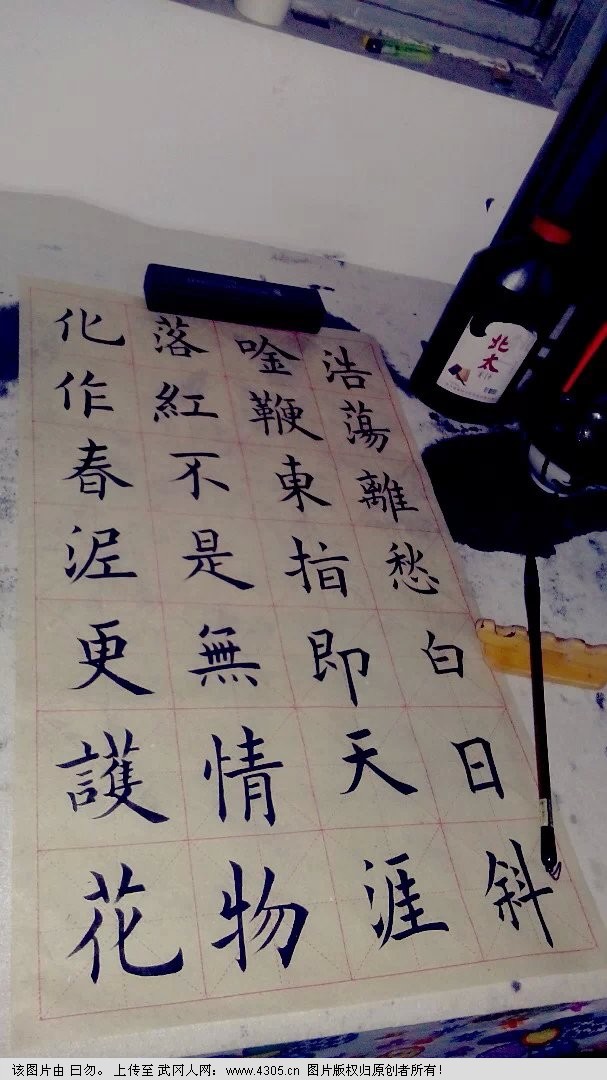 浩蕩離愁白日斜
唫鞭東指即天涯
落紅不是無情物
化作春泥更護花
北太
该图片由 曰勿。 上传至 武冈人网：www.4305.cn 图片版权归原创者所有！